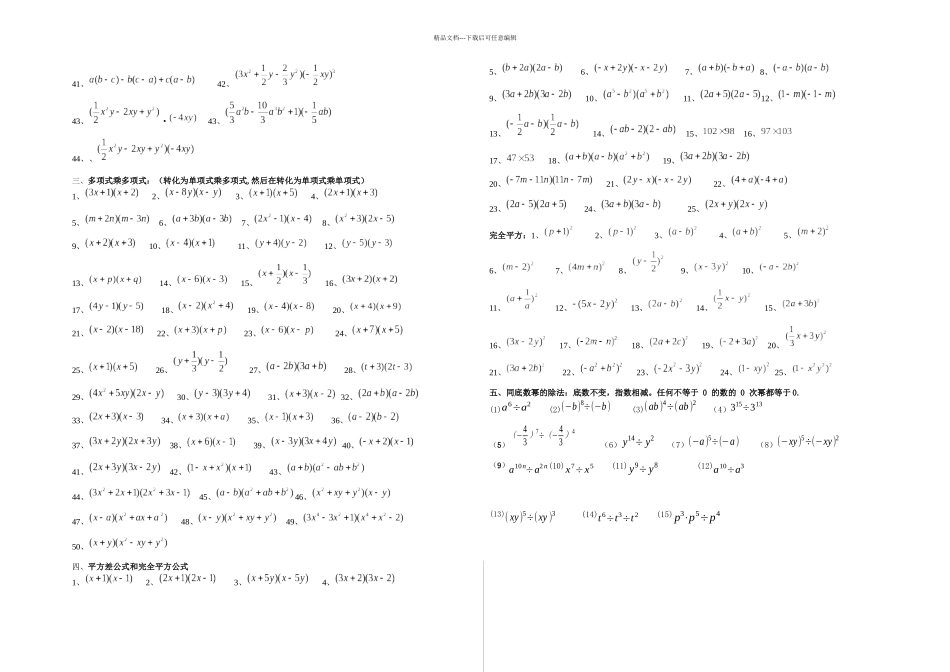 精品文档---下载后可任意编辑
41、a(b－c)－b(c－a)＋c(a－b) 42、(3x²＋1/2y－2/3y²)(－1/2xy)³
43、(1/2x²y－2xy＋y²)·(－4xy) 43、(5/3a²b－10/3a³b²＋1)(－1/5ab)
44、、(1/2x²y－2xy＋y²)(－4xy)
三、多项式乘多项式：（转化为单项式乘多项式,然后在转化为单项式乘单项式）
1、(3x＋1)(x＋2) 2、(x－8y)(x－y) 3、(x＋1)(x＋5) 4、(2x＋1)(x＋3)
5、(m＋2n)(m－3n) 6、(a＋3b)(a－3b) 7、(2x²－1)(x－4) 8、(x²＋3)(2x－5)
9、(x＋2)(x＋3) 10、(x－4)(x＋1) 11、(y＋4)(y－2) 12、(y－5)(y－3)
13、(x＋p)(x＋q) 14、(x－6)(x－3) 15、(x＋1/2)(x－1/3) 16、(3x＋2)(x＋2)
17、(4y－1)(y－5) 18、(x－2)(x²＋4) 19、(x－4)(x－8) 20、(x＋4)(x＋9)
21、(x－2)(x－18) 22、(x＋3)(x＋p) 23、(x－6)(x－p) 24、(x＋7)(x＋5)
25、(x＋1)(x＋5) 26、(y＋1/3)(y－1/2) 27、(a－2b)(3a＋b) 28、(t＋3)(2t－3)
29、(4x²＋5xy)(2x－y) 30、(y－3)(3y＋4) 31、(x＋3)(x－2) 32、(2a＋b)(a－2b)
33、(2x＋3)(x－3) 34、(x＋3)(x＋a) 35、(x－1)(x＋3) 36、(a－2)(b－2)
37、(3x＋2y)(2x＋3y) 38、(x＋6)(x－1) 39、(x－3y)(3x＋4y) 40、(－x＋2)(x－1)
41、(2x＋3y)(3x－2y) 42、(1－x＋x²)(x＋1) 43、(a＋b)(a²－ab＋b²)
44、(3x²＋2x＋1)(2x²＋3x－1) 45、(a－b)(a²＋ab＋b²) 46、(x²＋xy＋y²)(x－y)
47、(x－a)(x²＋ax＋a²) 48、(x－y)(x²＋xy＋y²) 49、(3x⁴－3x²＋1)(x⁴＋x²－2)
50、(x＋y)(x²－xy＋y²)
四、平方差公式和完全平方公式
1、(x＋1)(x－1) 2、(2x＋1)(2x－1) 3、(x＋5y)(x－5y) 4、(3x＋2)(3x－2)
5、(b＋2a)(2a－b) 6、(－x＋2y)(－x－2y) 7、(a＋b)(－b＋a) 8、(－a－b)(a－b)
9、(3a＋2b)(3a－2b) 10、(a⁵－b²)(a⁵＋b²) 11、(2a＋5)(2a－5) 12、(1－m)(－1－m)
13、(－1/2a－b)(1/2a－b) 14、(－ab－2)(2－ab) 15、102×98 16、97×103
17、47×53 18、(a＋b)(a－b)(a²＋b²) 19、(3a＋2b)(3a－2b)
20、(－7m－11n)(11n－7m) 21、(2y－x)(－x－2y) 22、(4＋a)(－4＋a)
23、(2a－5)(2a＋5) 24、(3a＋b)(3a－b) 25、(2x＋y)(2x－y)
完全平方：1、(p＋1)² 2、(p－1)² 3、(a－b)² 4、(a＋b)² 5、(m＋2)²
6、(m－2)² 7、(4m＋n)² 8、(y－1/2)² 9、(x－3y)² 10、(－a－2b)²
11、(a＋1/a)² 12、－(5x－2y)² 13、(2a－b)² 14、(1/2x－y)² 15、(2a＋3b)²
16、(3x－2y)² 17、(－2m－n)² 18、(2a＋2c)² 19、(－2＋3a)² 20、(1/3x＋3y)²
21、(3a＋2b)² 22、(－a²＋b²)² 23、(－2x²－3y)² 24、(1－xy)² 25、(1－x²y²)²
五、同底数幂的除法：底数不变，指数相减。任何不等于 0 的数的 0 次幂都等于0.
⑴a⁶÷a² ⑵(－b)⁸÷(－b) ⑶(ab)⁴÷(ab)² (4)3¹⁵÷3¹³
（5）(－4/3)⁷÷(－4/3)⁴ （6）y¹⁴÷y² （7）(－a)⁵÷(－a) （8）(－xy)⁵÷(－xy)²
（9）a¹⁰ⁿ÷a²ⁿ (10)x⁷÷x⁵ (11)y⁹÷y⁸ (12)a¹⁰÷a³
(13)(xy)⁵÷(xy)³ (14)t⁶÷t³÷t² (15)p³·p⁵÷p⁴